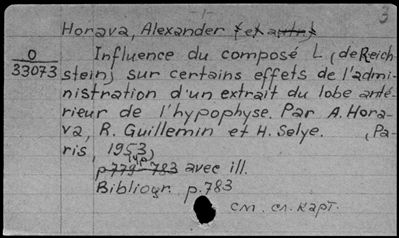 3
-1-
Horava, Alexander (et autri)
0
33073
Influence du composé L (de Reich-
stein) sur certains effets de l'admi-
nistration d'un extrait du lobe anté-
rieur de l'hypophyse. Par A. Hora-
va, R. Guillemin et H. Selye. (Pa-
ris, 1953)
p 779-783 avec ill.
Bibliogr. p. 783
см. сл. карт.